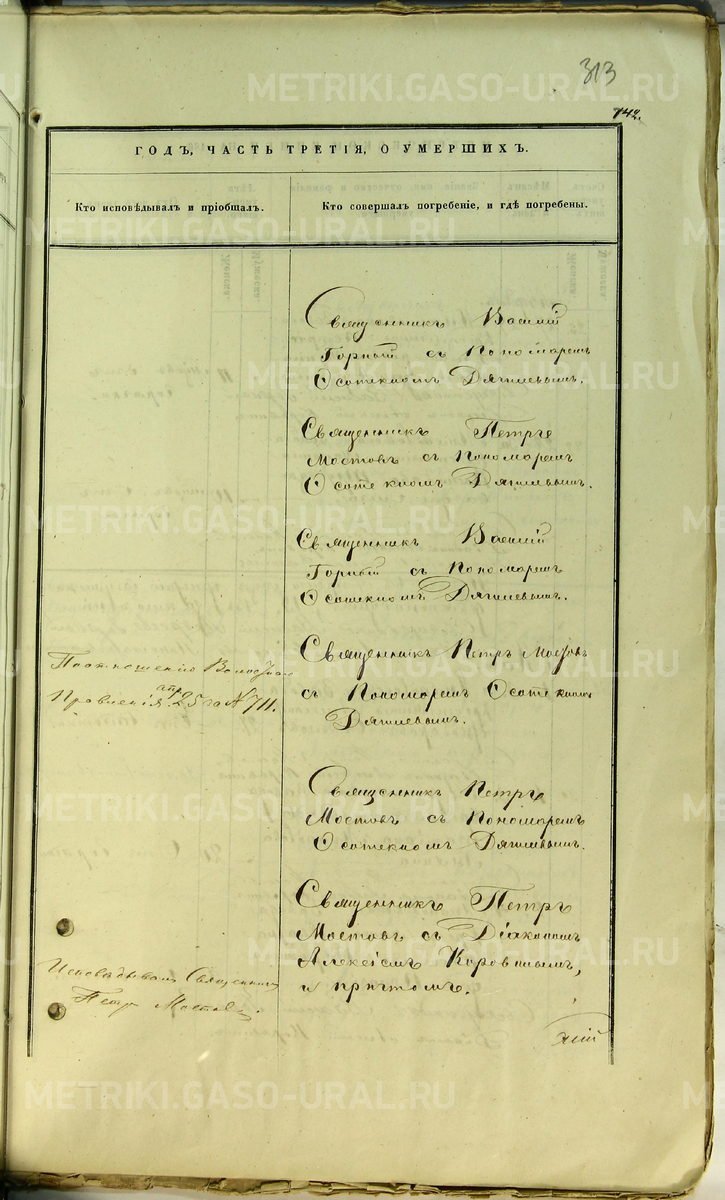 313
742.
ГОДЪ, ЧАСТЬ ТРЕТІЯ, О УМЕРШИХЪ.
Кто исповѣдывалъ и пріобщалъ.
Кто совершалъ погребеніе, и гдѣ погребены.
Священникъ Василій
Горный съ Пономаремъ
Дягилевымъ.
Священникъ Петръ
Мостовъ съ Пономаремъ
Дягилевымъ.
Священникъ Василій
Горный съ Пономаремъ
Дягилевымъ.
Священникъ Петръ Мостовъ
съ Пономаремъ
Дягилевымъ.
По отношенію Волостнаго
Правленія апр. 25 за № 711.
Священникъ Петръ
Мостовъ съ Пономаремъ
Дягилевымъ.
Священникъ Петръ
Мостовъ съ Діакономъ
Алексіемъ Коровинымъ,
и причтомъ.
Исповѣдывалъ Священникъ
Петръ Мостовъ.
METRIKI.GASO-URAL.RU